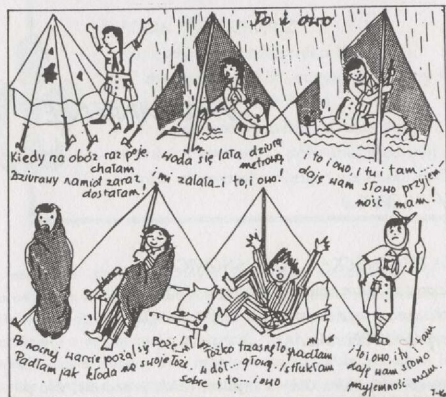 To i owo
Kiedy na obóz raz poje-
chałam
Dziurawy namiot zaraz
dostałam!
Woda się lała dziurą
metrową
i mi zalała... i to, i owo!
i to i owo, i tu i tam....
daję wam słowo przyjem
ność mam!
Po nocnej warcie pożal się Boże
Padłam jak kłoda na swoje łoże.
Łóżko trzasnęło spadłam
w dół... głową. / stłukłam
sobie i to... i owo
i to i owo, i tu i tam
daję wam słowo
przyjemność mam.